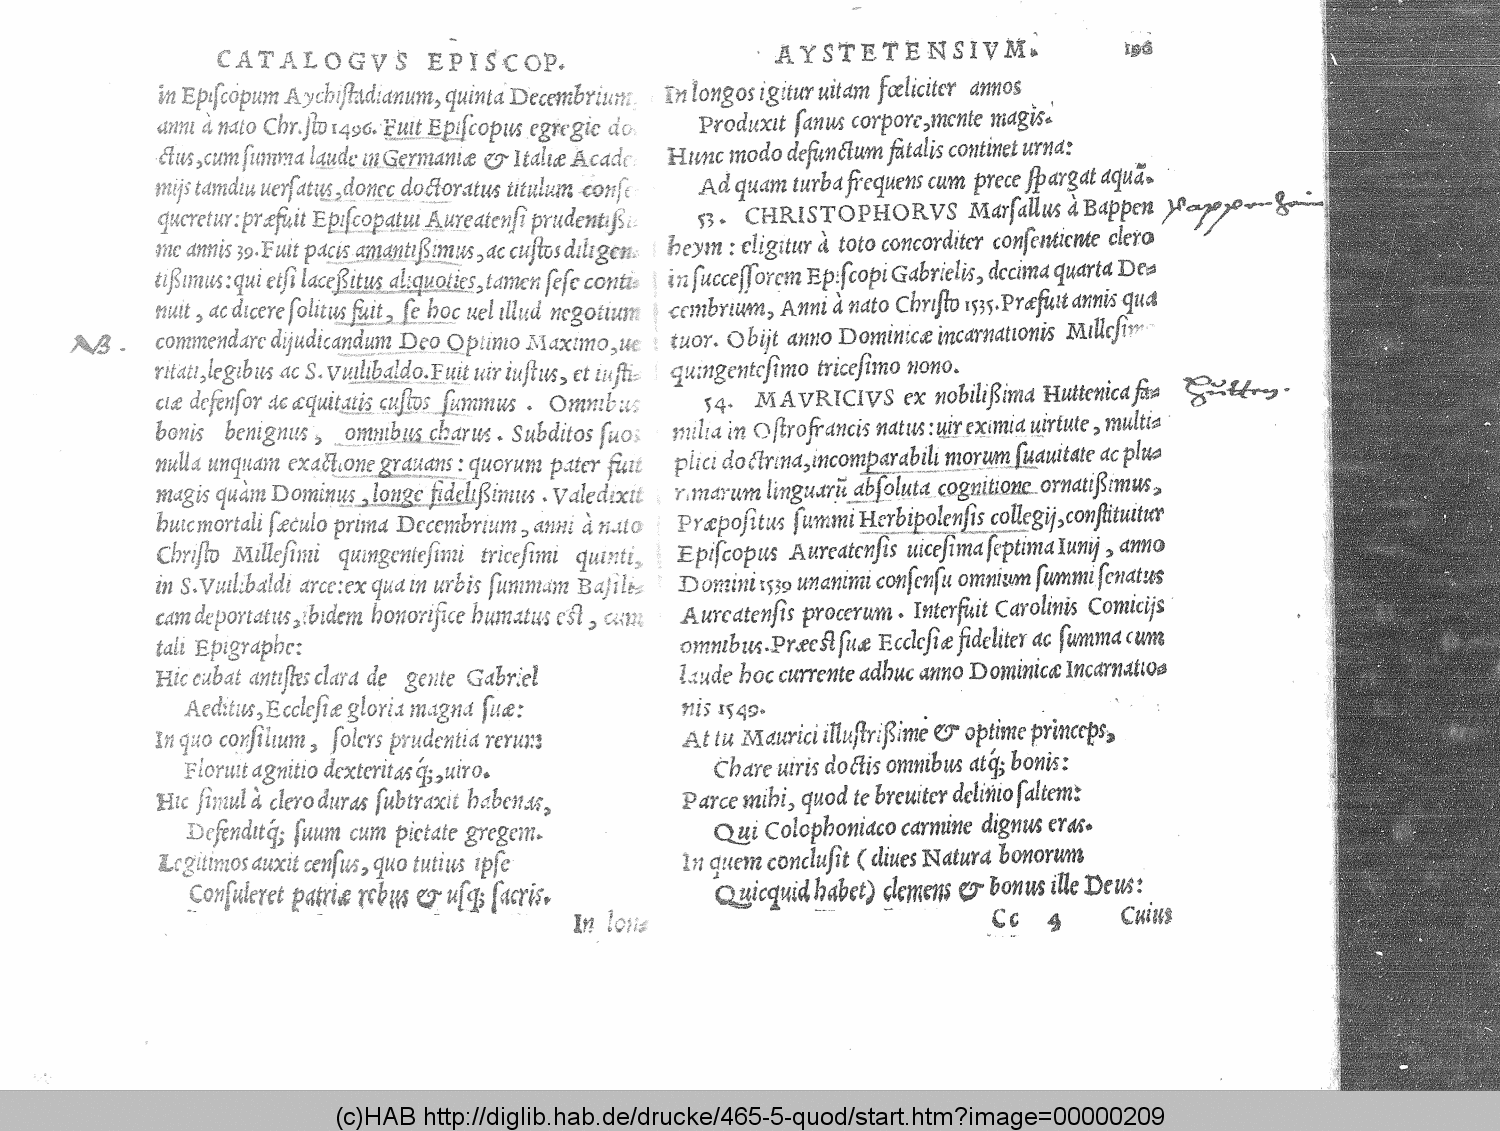 CATALOGVS EPISCOP.
in Epiſcopum Aychiſtadianum, quinta Decembrium
anni à nato Chr.ſto 1496. Fuit Epiſcopus egregie do
ctus, cum ſumma laude in Germaniæ & Italiæ Acade
mijs tamdiu uerſatus, donec doctoratus titulum conſe
queretur: præfuit Epiſcopatui Aureatenſi prudentißi
me annis 39. Fuit pacis amantißimus, ac cuſtos diligen
tißimus: qui etſi laceßitus aliquoties, tamen ſeſe conti-
nuit, ac dicere ſolitus fuit, ſe hoc uel illud negotium
NB.
commendare dijudicandum Deo Optimo Maximo, ue
ritati, legibus ac S. Vuilibaldo. Fuit uir iuſtus, et iuſti-
ciæ defenſor ac æquitatis cuſtos ſummus. Omnibus
bonis benignus, omnibus charus. Subditos ſuos
nulla unquam exactione grauans: quorum pater fuit
magis quàm Dominus, longe fidelißimus. Valedixit
huic mortali ſæculo prima Decembrium, anni à nato
Chriſto Milleſimi quingenteſimi triceſimi quinti,
in S. Vuilibaldi arce: ex qua in urbis ſummam Baſili-
cam deportatus, ibidem honorifice humatus eſt, cum
tali Epigraphe:
Hic cubat antiſtes clara de gente Gabriel
Aeditus, Eccleſiæ gloria magna ſuæ:
In quo conſilium, ſolers prudentia rerum
Floruit agnitio dexteritasq́;, uiro.
Hic ſimul à clero duras ſubtraxit habenas,
Defenditq́; ſuum cum pietate gregem.
Legitimos auxit cenſus, quo tutius ipſe
Conſuleret patriæ rebus & uſq; ſacris.
In lon-
AYSTETENSIVM. 196
In longos igitur uitam fœliciter annos
Produxit ſanus corpore, mente magis.
Hunc modo defunctum fatalis continet urna:
Ad quam turba frequens cum prece ſpargat aquã.
53. CHRISTOPHORVS Marſallus à Bappen
heym: eligitur à toto concorditer conſentiente clero
in ſucceſſorem Epiſcopi Gabrielis, decima quarta De-
cembrium, Anni à nato Chriſto 1535. Præfuit annis qua
tuor. Obijt anno Dominicæ incarnationis Milleſimo
quingenteſimo triceſimo nono.
54. MAVRICIVS ex nobilißima Huttenica fa-
milia in Oſtrofrancis natus: uir eximia uirtute, multi-
plici doctrina, incomparabili morum ſuauitate ac plu-
rimarum linguarũ abſoluta cognitione ornatißimus,
Præpoſitus ſummi Herbipolenſis collegij, conſtituitur
Epiſcopus Aureatenſis uiceſima ſeptima Iunij, anno
Domini 1539 unanimi conſenſu omnium ſummi ſenatus
Aureatenſis procerum. Interfuit Carolinis Comicijs
omnibus. Præeſt ſuæ Eccleſiæ fideliter ac ſumma cum
laude hoc currente adhuc anno Dominicæ Incarnatio-
nis 1549.
At tu Maurici illuſtrißime & optime princeps,
Chare uiris doctis omnibus atq́; bonis:
Parce mihi, quod te breuiter delinio ſaltem:
Qui Colophoniaco carmine dignus eras.
In quem concluſit (diues Natura bonorum
Quicquid habet) clemens & bonus ille Deus:
Cc 4 Cuius
(c)HAB http://diglib.hab.de/drucke/465-5-quod/start.htm?image=00000209